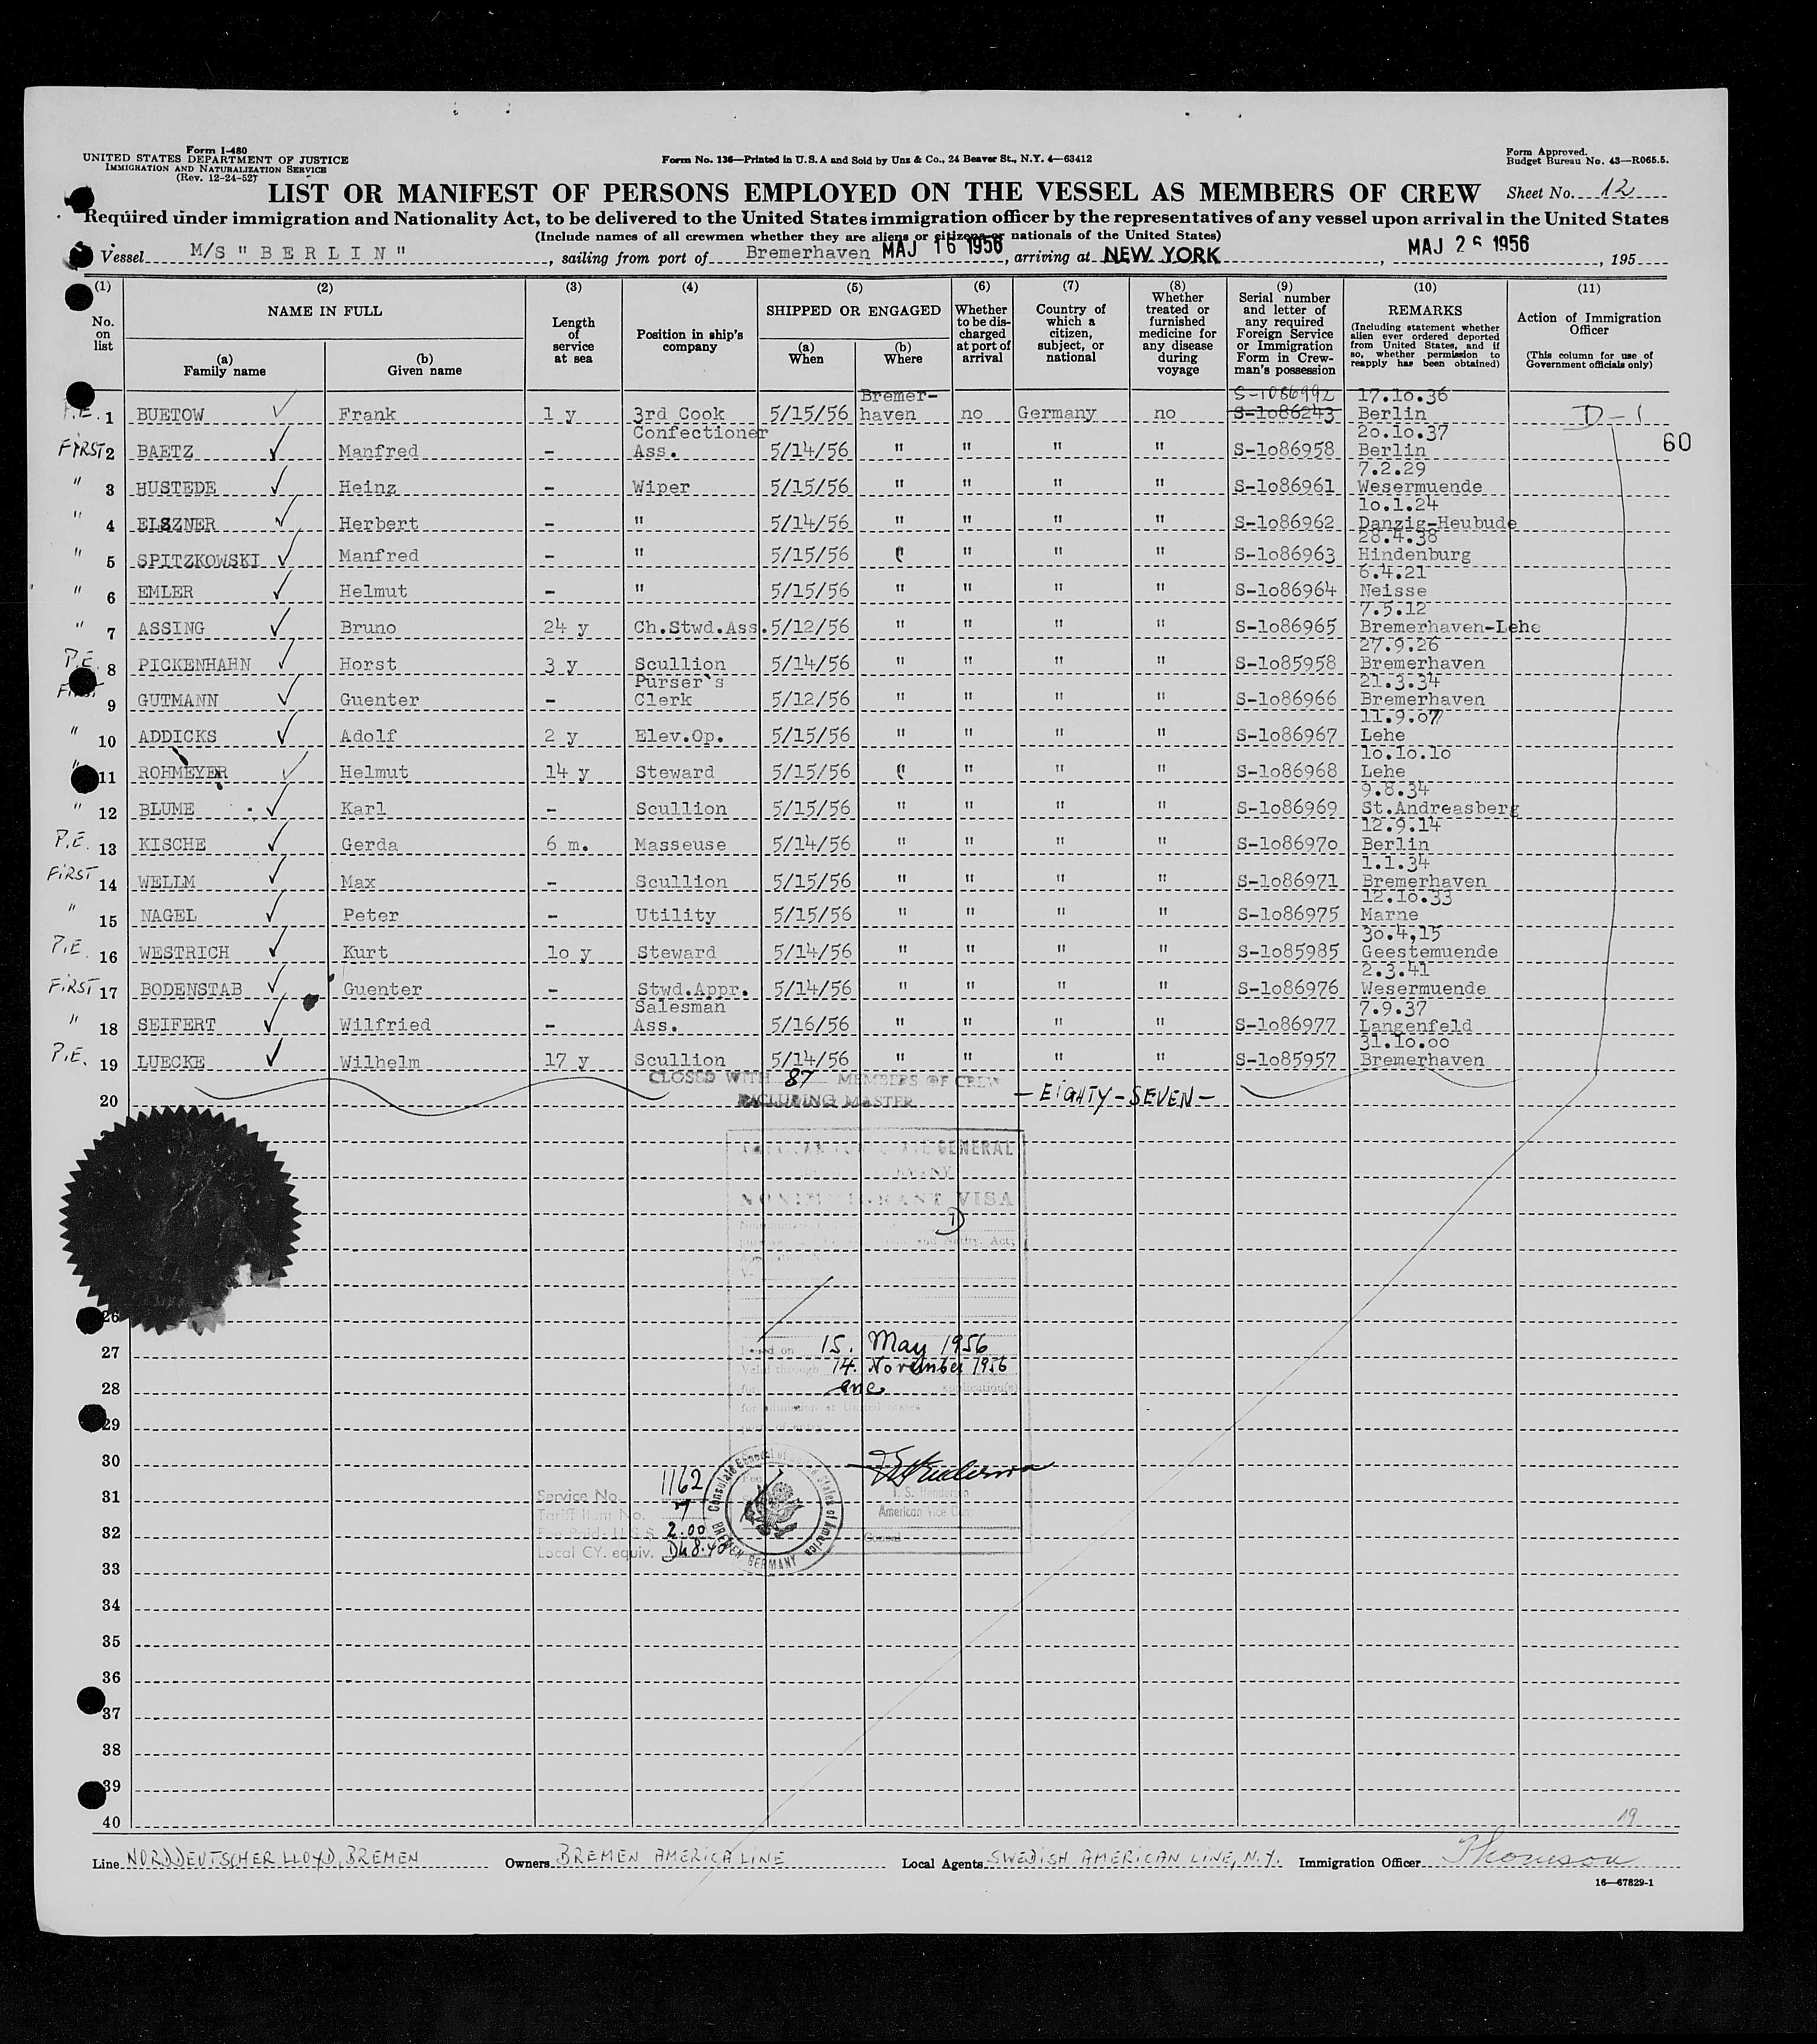 Form I-480
UNITED STATES DEPARTMENT OF JUSTICE
IMMIGRATION AND NATURALIZATION SERVICE
(Rev. 12-24-52)
Form No. 136—Printed in U.S.A and Sold by Unz & Co., 24 Beaver St., N.Y. 4—63412
Form Approved.
Budget Bureau No. 43—R065.5.
LIST OR MANIFEST OF PERSONS EMPLOYED ON THE VESSEL AS MEMBERS OF CREW Sheet No. 12
Required under immigration and Nationality Act, to be delivered to the United States immigration officer by the representatives of any vessel upon arrival in the United States
(Include names of all crewmen whether they are aliens or citizens or nationals of the United States)
Vessel M/S "BERLIN", sailing from port of Bremerhaven MAJ 16 1956, arriving at NEW YORK, MAJ 26 1956, 195
(1) (2) (3) (4) (5) (6) (7) (8) (9) (10) (11)
No. on list
NAME IN FULL
(a) Family name
(b) Given name
Length of service at sea
Position in ship's company
SHIPPED OR ENGAGED
(a) When
(b) Where
Whether to be discharged at port of arrival
Country of which a citizen, subject, or national
Whether treated or furnished medicine for any disease during voyage
Serial number and letter of any required Foreign Service or Immigration Form in Crewman's possession
REMARKS
(Including statement whether alien ever ordered deported from United States, and if so, whether permission to reapply has been obtained)
Action of Immigration Officer
(This column for use of Government officials only)
P.E. 1 BUETOW Frank 1 y 3rd Cook 5/15/56 Bremerhaven no Germany no S-1086992 S-1o86243 17.1o.36 Berlin D-1
60
FIRST 2 BAETZ Manfred - Confectioner Ass. 5/14/56 " " " " S-1o86958 2o.1o.37 Berlin
" 3 HUSTEDE Heinz - Wiper 5/15/56 " " " " S-1o86961 7.2.29 Wesermuende
" 4 ELSZNER Herbert - " 5/14/56 " " " " S-1o86962 1o.1.24 Danzig-Heubude
" 5 SPITZKOWSKI Manfred - " 5/15/56 " " " " S-1o86963 28.4.38 Hindenburg
" 6 EMLER Helmut - " 5/15/56 " " " " S-1o86964 6.4.21 Neisse
" 7 ASSING Bruno 24 y Ch.Stwd.Ass. 5/12/56 " " " " S-1o86965 7.5.12 Bremerhaven-Lehe
P.E. 8 PICKENHAHN Horst 3 y Scullion 5/14/56 " " " " S-1o85958 27.9.26 Bremerhaven
FIRST 9 GUTMANN Guenter - Purser`s Clerk 5/12/56 " " " " S-1o86966 21.3.34 Bremerhaven
" 10 ADDICKS Adolf 2 y Elev.Op. 5/15/56 " " " " S-1o86967 11.9.o7 Lehe
" 11 ROHMEYER Helmut 14 y Steward 5/15/56 " " " " S-1o86968 1o.1o.1o Lehe
" 12 BLUME Karl - Scullion 5/15/56 " " " " S-1o86969 9.8.34 St.Andreasberg
P.E. 13 KISCHE Gerda 6 m. Masseuse 5/14/56 " " " " S-1o8697o 12.9.14 Berlin
FIRST 14 WELLM Max - Scullion 5/15/56 " " " " S-1o86971 1.1.34 Bremerhaven
" 15 NAGEL Peter - Utility 5/15/56 " " " " S-1o86975 12.1o.33 Marne
P.E. 16 WESTRICH Kurt 1o y Steward 5/14/56 " " " " S-1o85985 3o.4,15 Geestemuende
FIRST 17 BODENSTAB Guenter - Stwd.Appr. 5/14/56 " " " " S-1o86976 2.3.41 Wesermuende
" 18 SEIFERT Wilfried - Salesman Ass. 5/16/56 " " " " S-1o86977 7.9.37 Langenfeld
P.E. 19 LUECKE Wilhelm 17 y Scullion 5/14/56 " " " " S-1o85957 31.1o.oo Bremerhaven
CLOSED WITH 87 MEMBERS OF CREW
20 MASTER - EIGHTY-SEVEN -
GENERAL
NONIMMIGRANT VISA
D
26
27 15. May 1956
Valid through 14. November 1956
28 for one application(s)
for admission at United States
29
30
T. S. Henderson
American Vice
Consul
31 Service No. 1162
Tariff Item No. 7
32 Fee Paid: U.S.$ 2.00
Local CY. equiv. DM 8.40
Consulate General of the United States of America
BREMEN GERMANY
33
34
35
36
37
38
39
40
19
Line NORDDEUTSCHER LLOYD, BREMEN Owners BREMEN AMERICA LINE Local Agents SWEDISH AMERICAN LINE, N.Y. Immigration Officer Thomson
16—67829-1